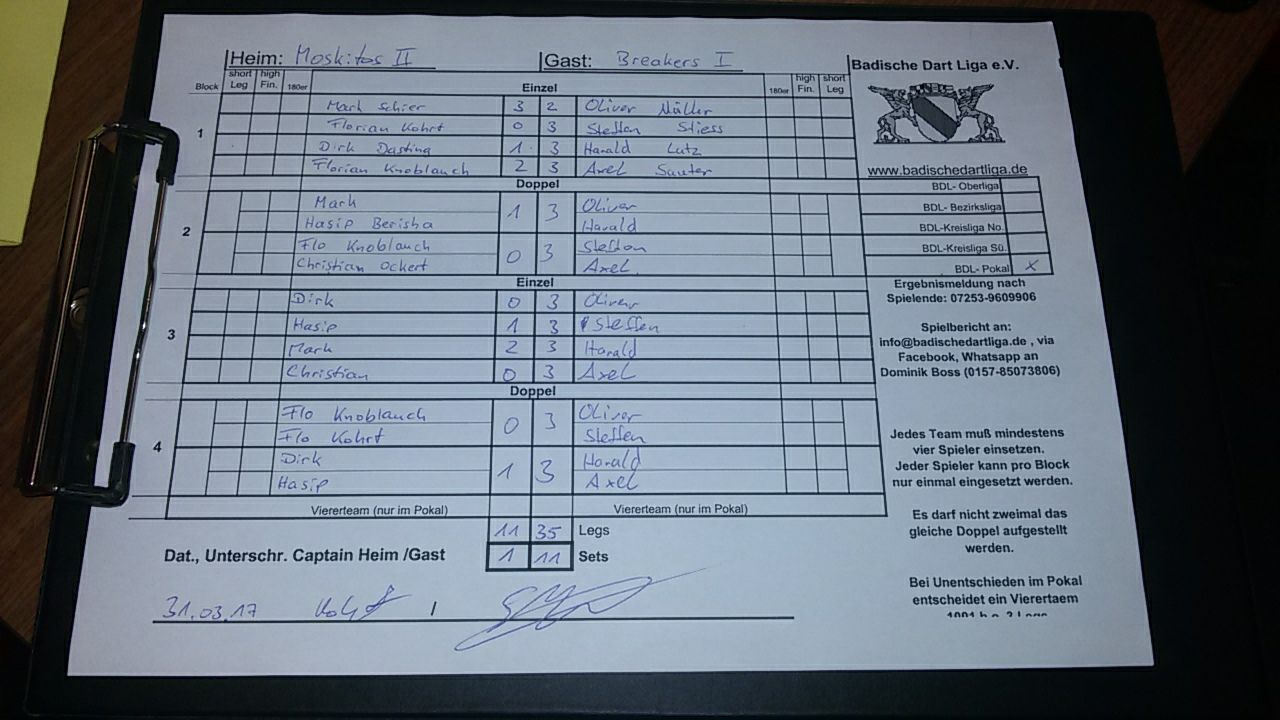 Heim: Moskitos II Gast: Breakers I
Badische Dart Liga e.V.
Block short Leg high Fin. 180er Einzel 180er high Fin. short Leg
1
Mark Schier 3 2 Oliver Müller
Florian Kohrt 0 3 Steffen Stiess
Dirk Dasting 1 3 Harald Lutz
Florian Knoblauch 2 3 Axel Sauter
www.badischedartliga.de
Doppel
BDL- Oberliga
BDL- Bezirksliga
BDL-Kreisliga No.
BDL-Kreisliga Sü.
BDL- Pokal x
2
Mark 1 3 Oliver
Hasip Berisha Harald
Flo Knoblauch 0 3 Steffen
Christian Ockert Axel
Einzel
3
Dirk 0 3 Oliver
Hasip 1 3 Steffen
Mark 2 3 Harald
Christian 0 3 Axel
Ergebnismeldung nach
Spielende: 07253-9609906
Spielbericht an:
info@badischedartliga.de , via
Facebook, Whatsapp an
Dominik Boss (0157-85073806)
Doppel
4
Flo Knoblauch 0 3 Oliver
Flo Kohrt Steffen
Dirk 1 3 Harald
Hasip Axel
Jedes Team muß mindestens
vier Spieler einsetzen.
Jeder Spieler kann pro Block
nur einmal eingesetzt werden.
Viererteam (nur im Pokal) Viererteam (nur im Pokal)
11 35 Legs
1 11 Sets
Es darf nicht zweimal das
gleiche Doppel aufgestellt
werden.
Dat., Unterschr. Captain Heim /Gast
31.03.17 /
Bei Unentschieden im Pokal
entscheidet ein Vierertaem
1001 b.o. 2 Legs